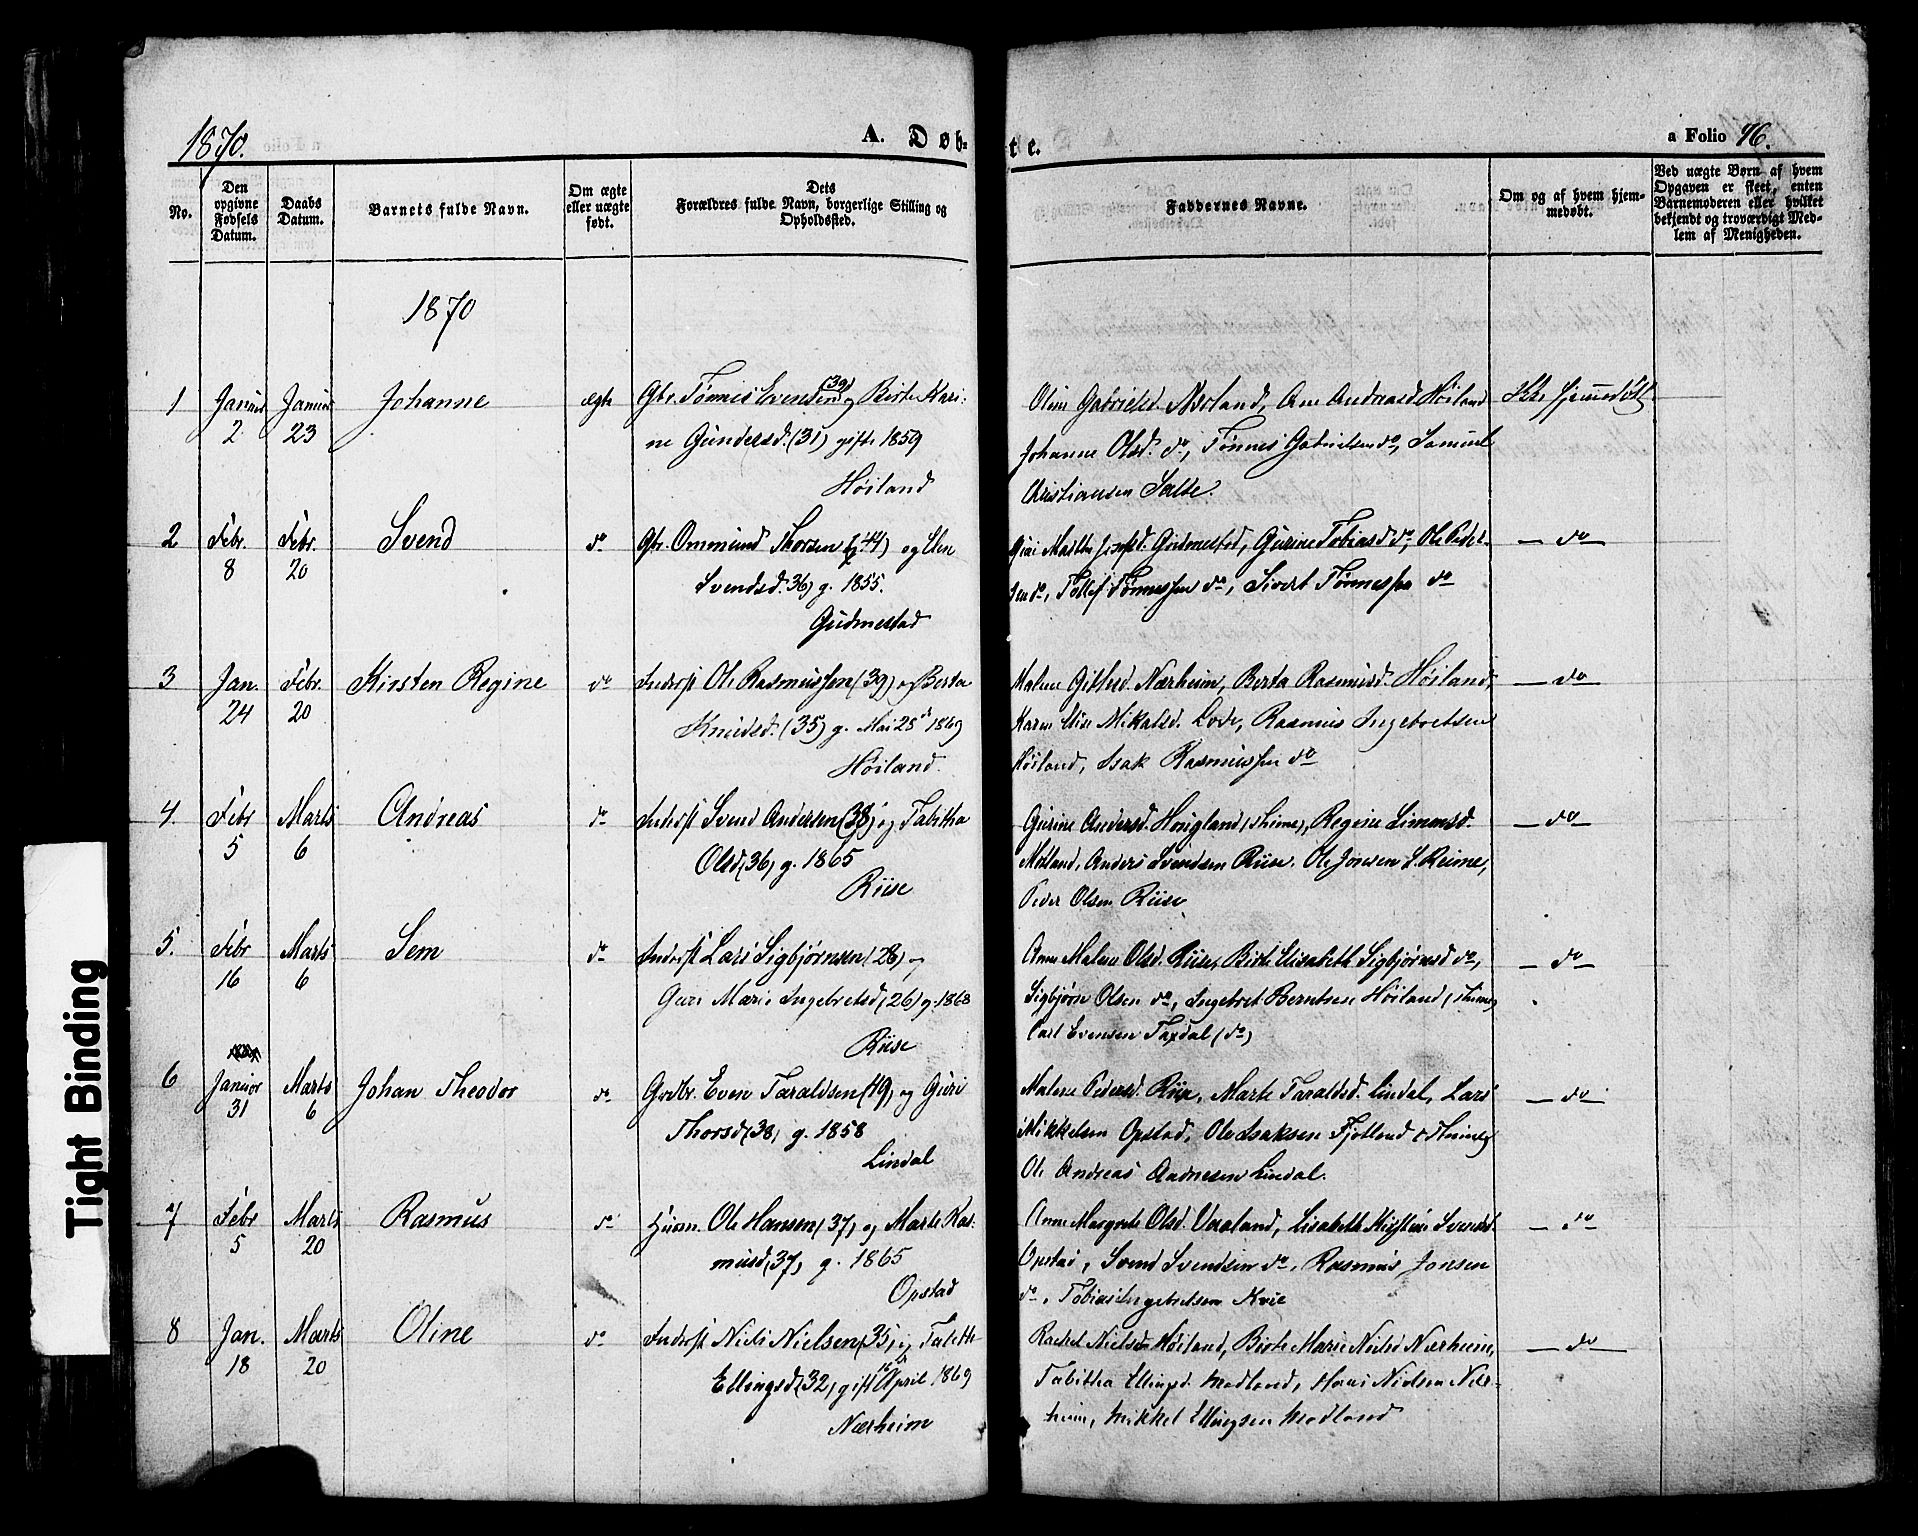 1870.
A. Døb-
te.
a Folio 46.
No.
Den opgivne Fødsels Datum.
Daabs Datum.
Barnets fulde Navn.
Om ægte eller uægte født.
Dets Forældres fulde Navn, borgerlige Stilling og Opholdssted.
Faddernes Navne.
Om og af hvem hjem-
medøbt.
Ved uægte Børn af hvem
Opgaven er skeet, enten
Barnemoderen eller hvilket
bekjendt og troværdigt Med-
lem af Menigheden.
1870
1 Januar 2 Januar 23 Johanne ægte Gbr. Tønnes Evensen (39) og Birte Kari-
ne Gundersd. (31) gift 1859
Høiland
Oline Gabrielsd. Aarland, Ane Andreasd. Høiland
Johanne Olsd. do, Tønnes Gabrielsen do, Samuel
Christiansen Salte.
Ikke hjemmedøbt
2 Febr. 8 Febr. 20 Svend do Gbr. Ommund Thorsen (44) og Elen
Svendsd. 36) g. 1855.
Gudmestad
Malthe Josefsd. Gudmestad, Gurine Tobiasd do, Ole Peder-
sen do, Tollef Tønnessen do, Sivert Tønnessen do
— do —
3 Jan. 24 Febr. 20 Kirsten Regine do Inderst Ole Rasmussen (39) og Berta
Knudsd. (35) g. Mai 28d 1869
Høiland.
Malene Nærheim, Berta Rasmusd. Høiland,
Karen Elise Mikalsd. Lode, Rasmus Ingebretsen
Høiland, Isak Rasmussen do
— do —
4. Febr 5 Marts 6 Andreas do Inderst Svend Andersen (38) og Tabitha
Olsd (36) g. 1865
Riise
Gurine Andersd. Hougland (Thime), Regine Simonsd.
Motland, Anders Svendsen Riise. Ole Jonsen S. Reime,
Peder Olsen Riise
— do —
5. Febr 16 Marts 6 Sem do Inderst Lars Sigbjørnsen (28) og
Guri Marie Ingebretsd (26) g. 1868
Riise
Anne Malene Olsd. Riise, Birte Elisabeth Sigbjørnsd do,
Sigbjørn Olsen do, Ingebret Berntsen Høiland, (Thime)
Carl Evensen Taxdal (do)
— do —
6 Januar 31 Marts 6 Johan Theodor do Grdbr. Even Taraldsen (49) og Guri
Thorsd (38) g. 1858
Lindal
Malene Pedersd. Riise, Marte Taraldsd. Lindal, Lars
Mikkelsen Opstad, Ole Isaksen Fjotland
Ole Andreas Aadnesen Lindal.
— do —
7 Febr 5 Marts 20 Rasmus do Husm. Ole Hansen (37) og Marte Ras-
musd (37) g. 1865
Opstad
Anne Margrete Olsd. Varland, Lisabeth Kirstine Svendsd.
Opstad, Svend Svendsen do, Rasmus Jonsen
do, Tobias Ingebretsen Kvie
— do —
8 Jan. 18 Marts 20 Oline do Inderst Niels Nielsen (35) og Talethe
Ellingsd (32) gift 16d April 1869
Nærheim
Rachel Nielsd Høiland, Birte Marie Nielsd Nærheim,
Tabitha Ellingsd. Modland, Hans Nielsen Nær-
heim, Mikkel Ellingsen Modland
— do —
Tight Binding